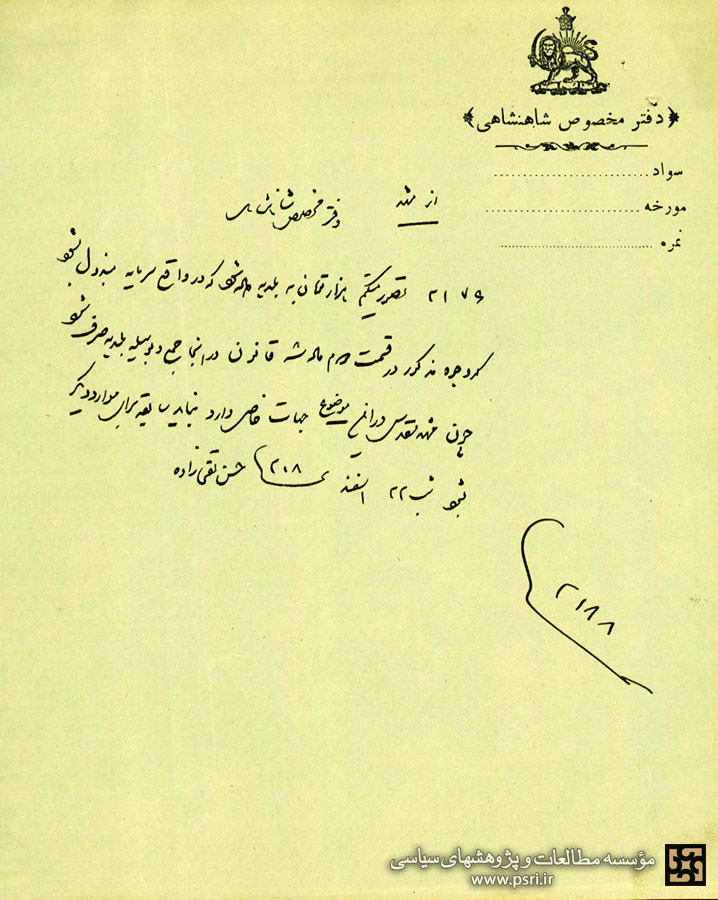 دفتر مخصوص شاهنشاهی
سواد
مورخه
نمره
از مشهد
دفتر مخصوص شاهنشاهی
۲۱۷۶ تصور میکنم هزار تومان به بلدیه داده شود که در واقع سرمایه مبذول بشود
که وجوه مذکور در قسمت دوم ماده قانون در اینجا جمع و بوسیله بلدیه صرف شود
چون مشهد مقدس در این موضوع جهات خاصی دارد نباید سابقه برای موارد دیگر
بشود شب ۲۲ اسفند ۲۰۸ حسن تقی زاده
۲۱۸۸
مؤسسه مطالعات و پژوهشهای سیاسی
www.psri.ir